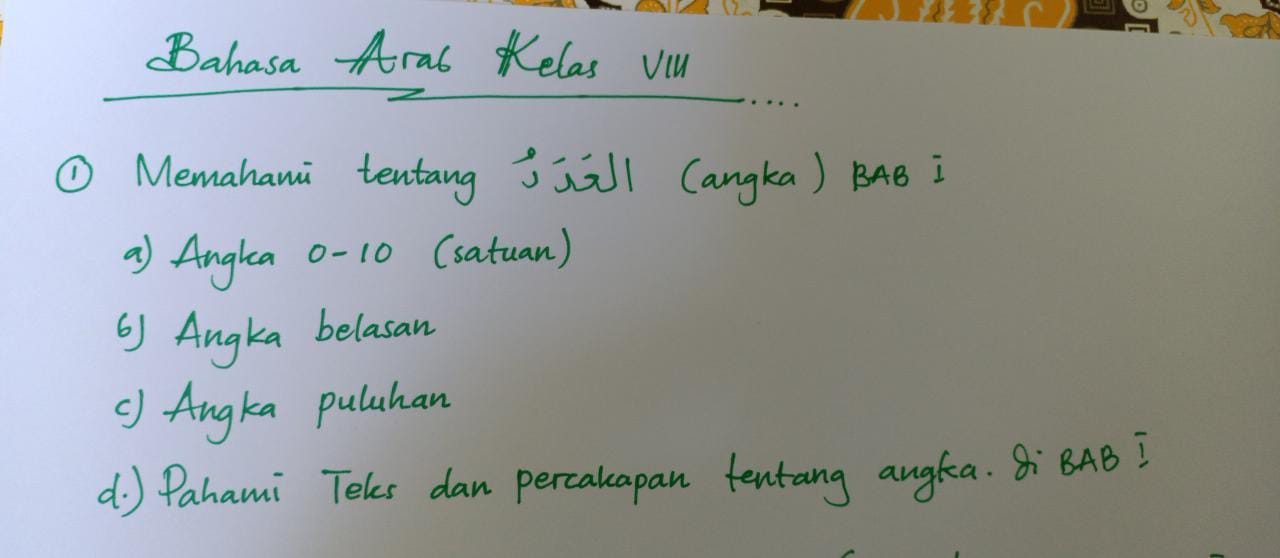 Bahasa Arab Kelas VIII ....
① Memahami tentang العَدَدُ (angka) BAB I
a) Angka 0-10 (satuan)
b) Angka belasan
c) Angka puluhan
d.) Pahami Teks dan percakapan tentang angka. di BAB I